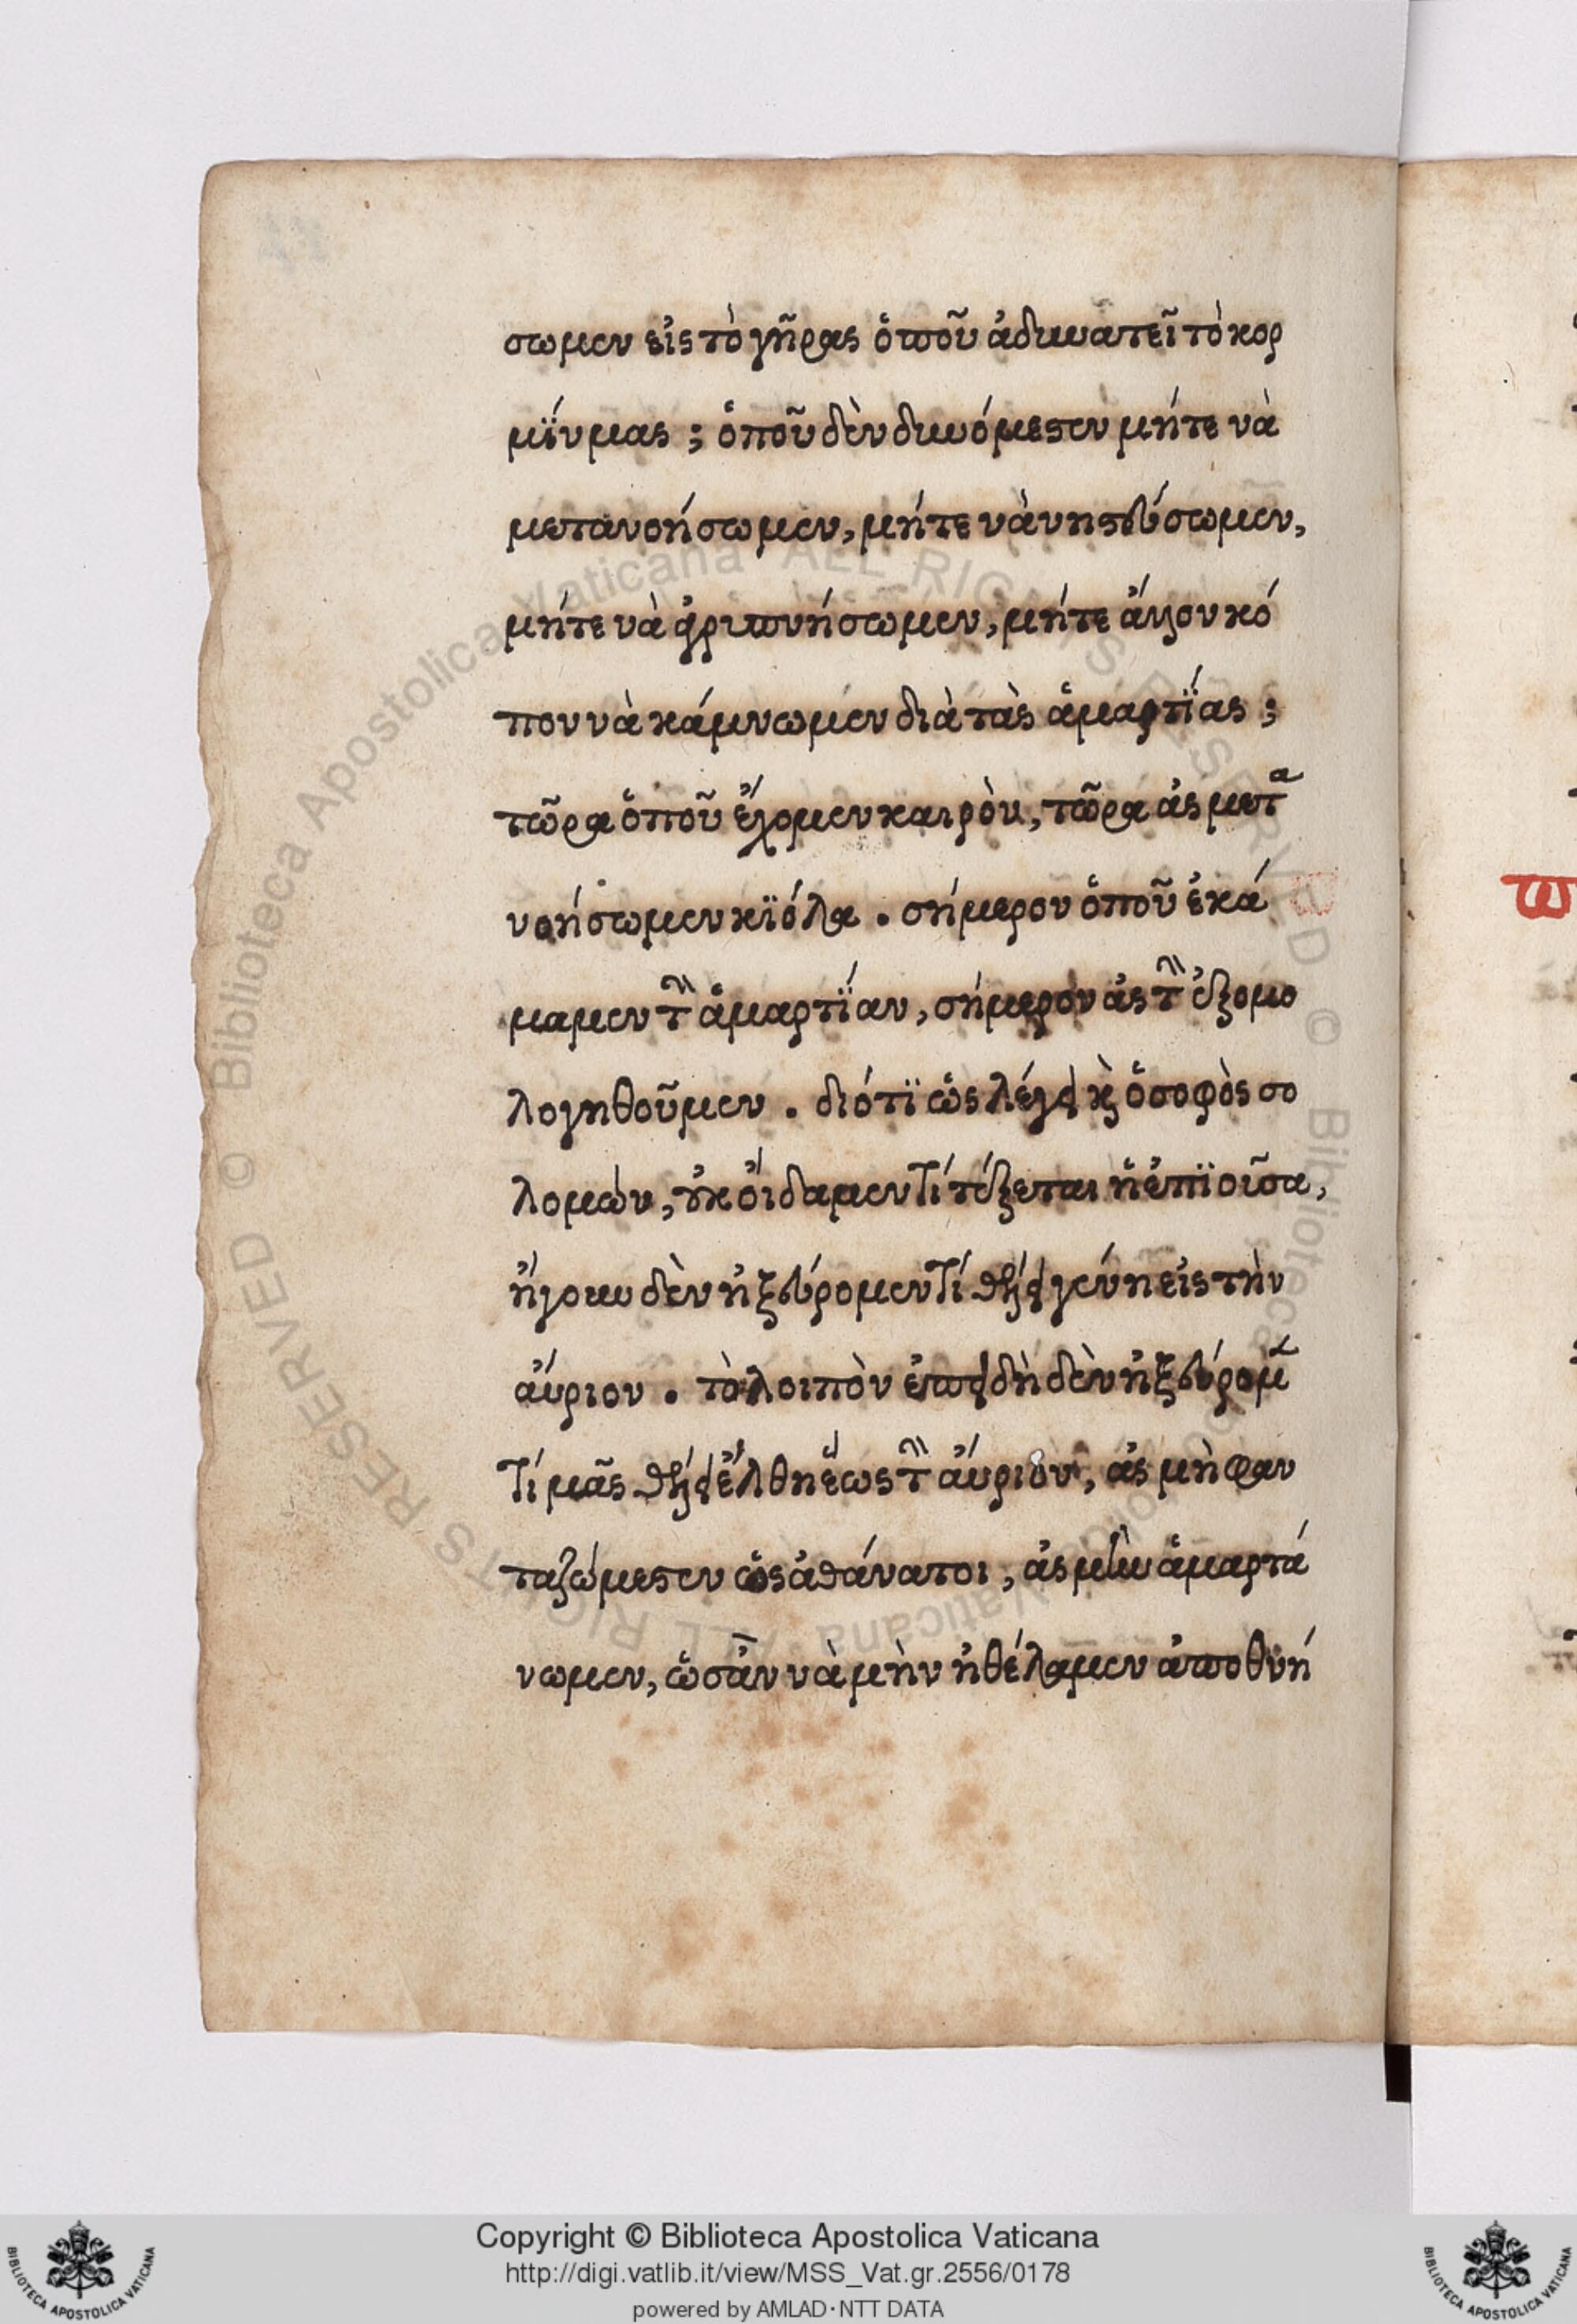 σωμεν εἰς τὸ γῆρας ὁποῦ ἀδυνατεῖ τὸ κορ
μΐν μας ; ὁποῦ δὲν δυνόμεστεν μήτε νὰ
μετανοήσωμεν, μήτε νὰ νηστεύσωμεν,
μήτε νὰ ἀγριπνήσωμεν, μήτε ἄλλον κό
πον νὰ κάμνωμεν διὰ τὰς ἁμαρτΐας ;
τῶρα ὁποῦ ἔχομεν καιρὸν, τῶρα ἀς μετα
νοήσωμεν κϊόλα . σήμερον ὁποῦ ἐκά
μαμεν τὴν ἁμαρτΐαν, σήμερον ἀς τὴν ἐξομο
λογηθοῦμεν . διότϊ ὡς λέγει κ̀ ὁ σοφὸς σο
λομών, οὐκ οἴδαμεν τί τέξεται ἡ ἐπϊοῦσα,
ἤγουν δὲν ἠξεύρομεν τί θέλει γένη εἰς τὴν
ἄυριον . τὸ λοιπὸν ἐπειδὴ δὲν ἠξεύρομεν
τί μᾶς θέλει ἔλθη ἕως τὴν ἄυριον, ἀς μὴ φαν
ταζώμεστεν ὡς ἀθάνατοι, ἀς μὴν ἁμαρτά
νωμεν, ὡσὰν νὰ μὴν ἠθέλαμεν ἀποθνή
Copyright © Biblioteca Apostolica Vaticana
http://digi.vatlib.it/view/MSS_Vat.gr.2556/0178
powered by AMLAD·NTT DATA